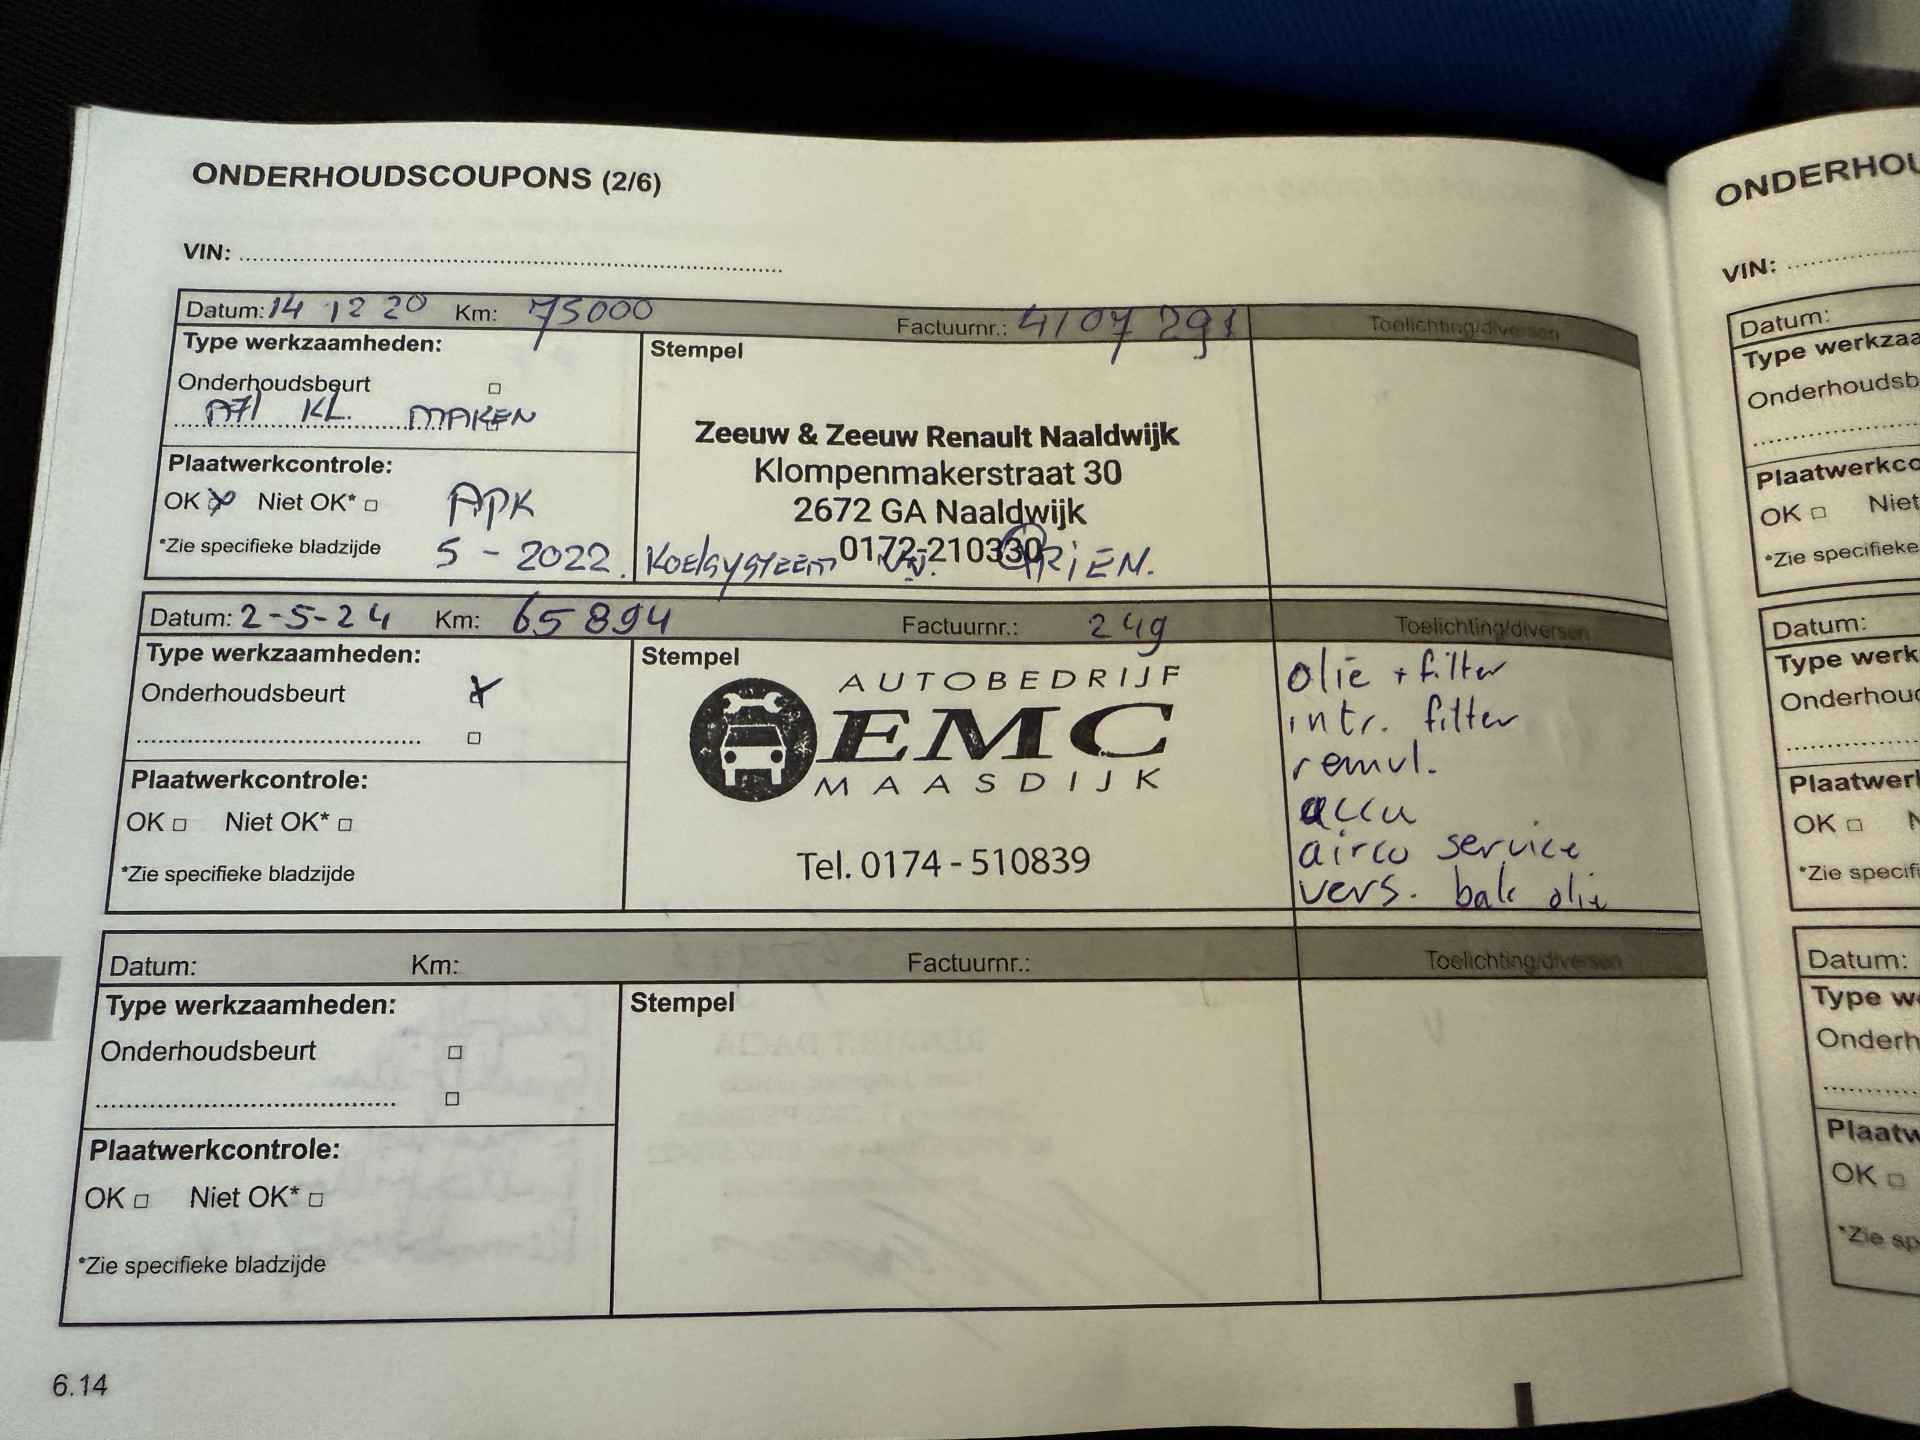 ONDERHOUDSCOUPONS (2/6)
VIN:
Datum: 14 12 20 Km: 75000 Factuurnr.: 4107 291 Toelichting/diversen
Type werkzaamheden:
Stempel
Onderhoudsbeurt
KL. MAKEN
Zeeuw & Zeeuw Renault Naaldwijk
Klompenmakerstraat 30
2672 GA Naaldwijk
0172-210330
Plaatwerkcontrole:
OK Niet OK* APK
*Zie specifieke bladzijde 5 - 2022. KOELSYSTEEM
Datum: 2-5-24 Km: 65894 Factuurnr.: 249 Toelichting/diversen
Type werkzaamheden:
Stempel
Onderhoudsbeurt
AUTOBEDRIJF
EMC
MAASDIJK
Tel. 0174 - 510839
olie + filter
intr. filter
remvl.
accu
airco service
vers. bak olie
Plaatwerkcontrole:
OK Niet OK*
*Zie specifieke bladzijde
Datum: Km: Factuurnr.: Toelichting/diversen
Type werkzaamheden:
Stempel
Onderhoudsbeurt
Plaatwerkcontrole:
OK Niet OK*
*Zie specifieke bladzijde
6.14
ONDERHOU
VIN:
Datum:
Type werkzaa
Onderhoudsb
Plaatwerkco
OK Niet
*Zie specifieke
Datum:
Type werk
Onderhoud
Plaatwerl
OK
*Zie specifi
Datum:
Type w
Onderh
Plaatw
OK
*Zie sp